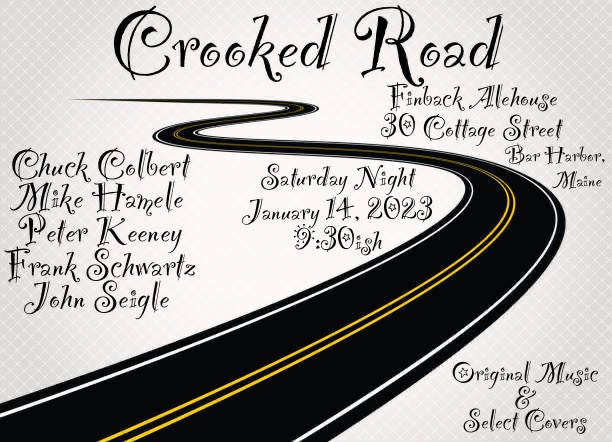 Crooked Road
Finback Alehouse
30 Cottage Street
Bar Harbor,
Maine
Chuck Colbert
Mike Hamele
Peter Keeney
Frank Schwartz
John Seigle
Saturday Night
January 14, 2023
9:30ish
Original Music
&
Select Covers